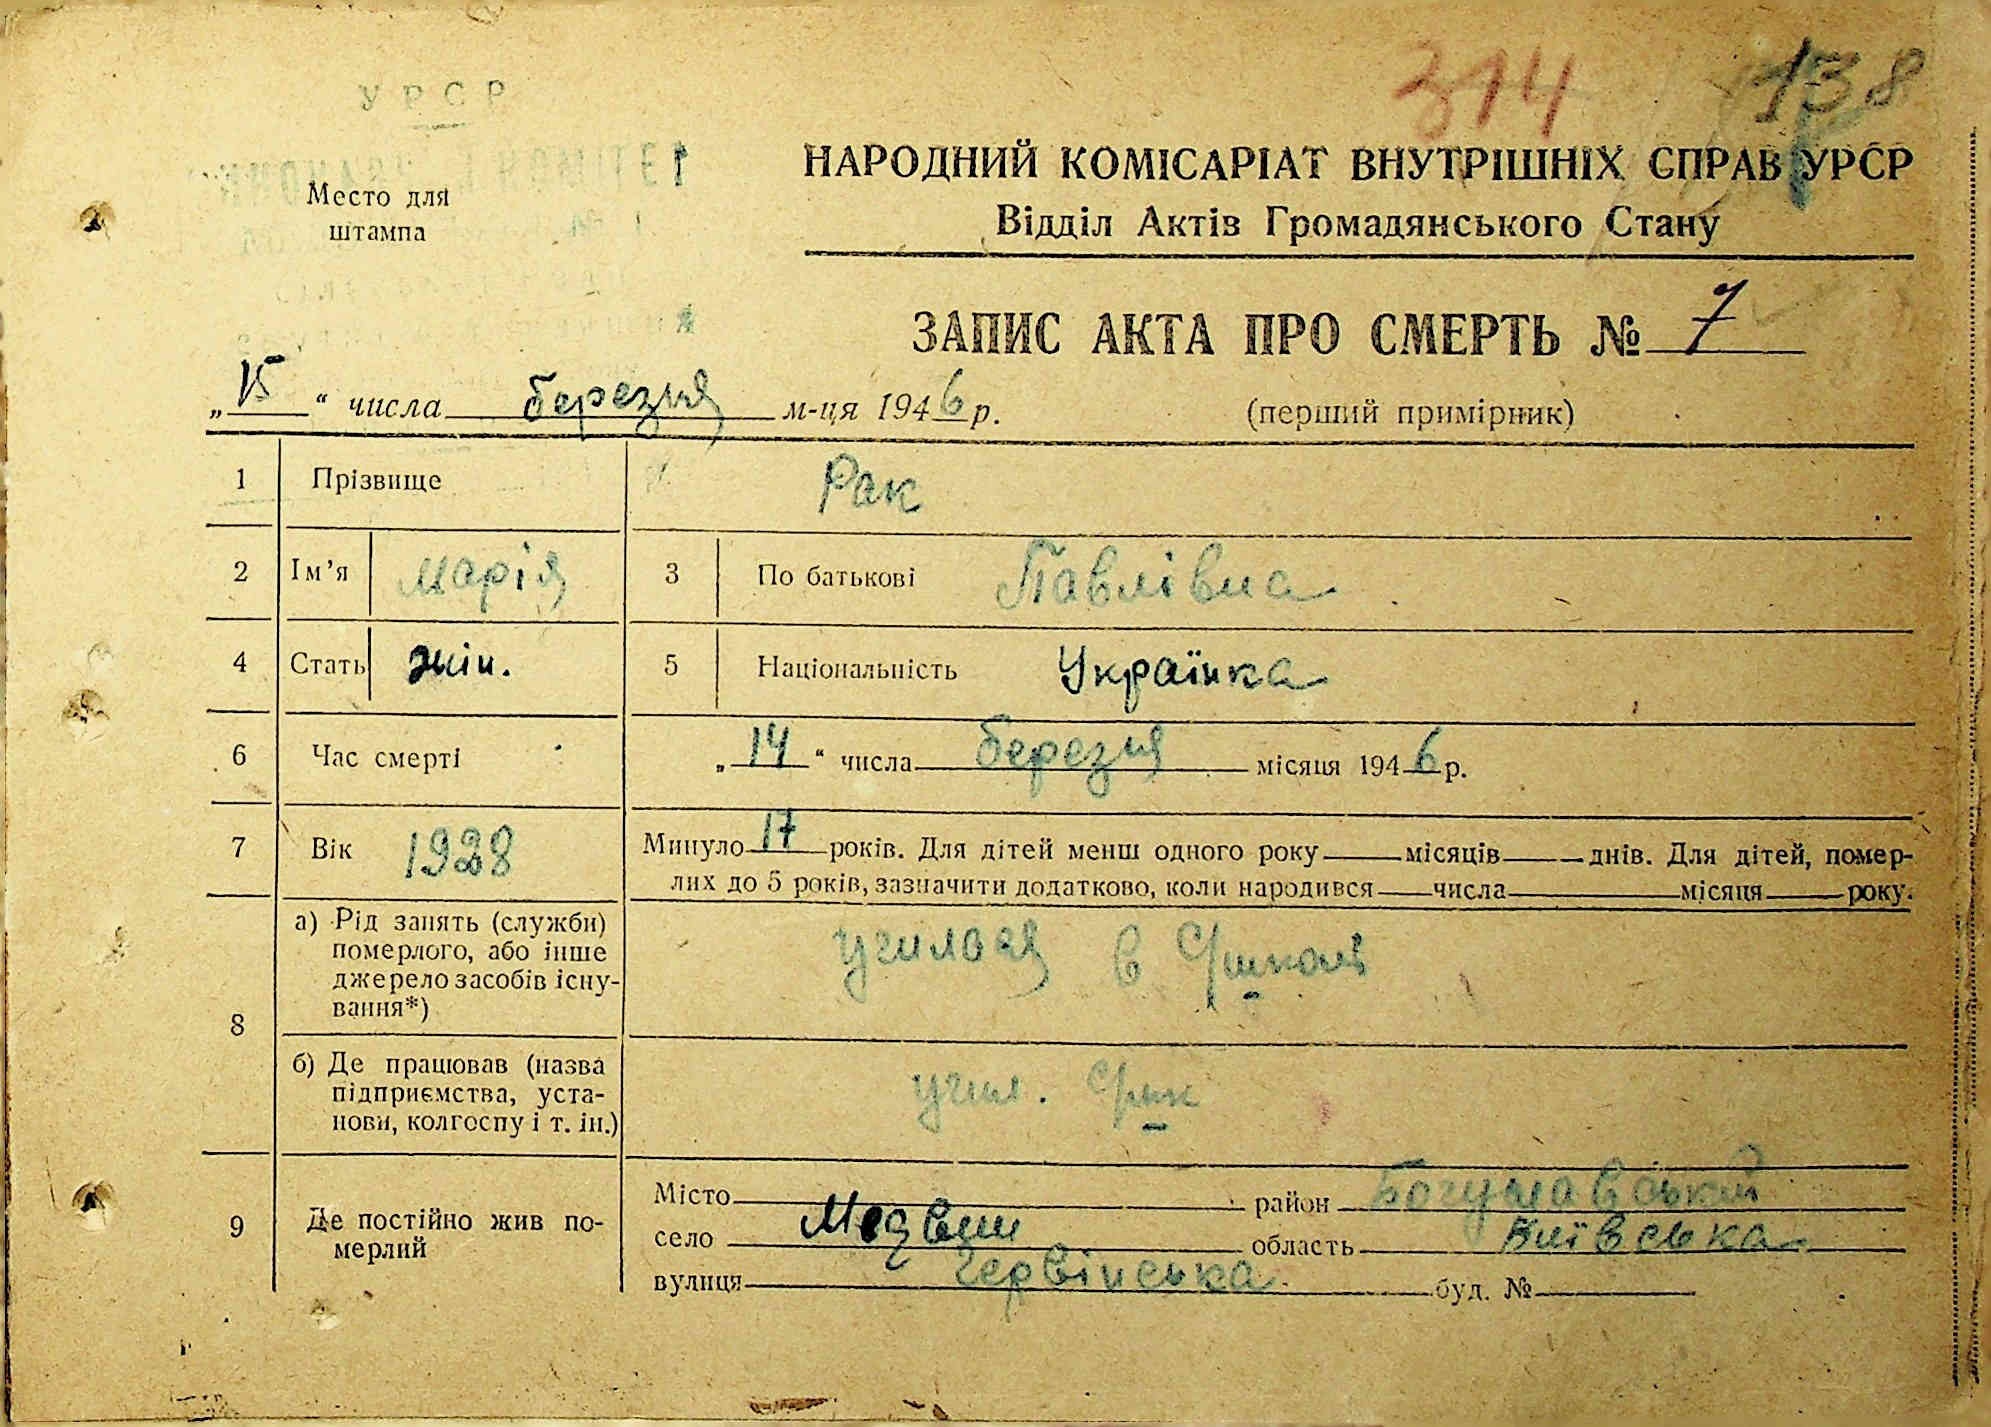 314 138
УРСР
Место для
штампа
НАРОДНИЙ КОМІСАРІАТ ВНУТРІШНІХ СПРАВ УРСР
Відділ Актів Громадянського Стану
ЗАПИС АКТА ПРО СМЕРТЬ № 7
„15“ числа березня м-ця 1946 р.
(перший примірник)
1 Прізвище Рак
2 Ім’я Марія 3 По батькові Павлівна
4 Стать жін. 5 Національність Українка
6 Час смерті „14“ числа березня місяця 1946 р.
7 Вік 1928 Минуло 17 років. Для дітей менш одного року місяців днів. Для дітей, помер-
лих до 5 років, зазначити додатково, коли народився числа місяця року.
8 а) Рід занять (служби)
померлого, або інше
джерело засобів існу-
вання*)
училася в С/школі
б) Де працював (назва
підприємства, уста-
нови, колгоспу і т. ін.)
учил.
9 Де постійно жив по-
мерлий
Місто район Богуславський
село Медвин область Київська
вулиця Червінська буд. №